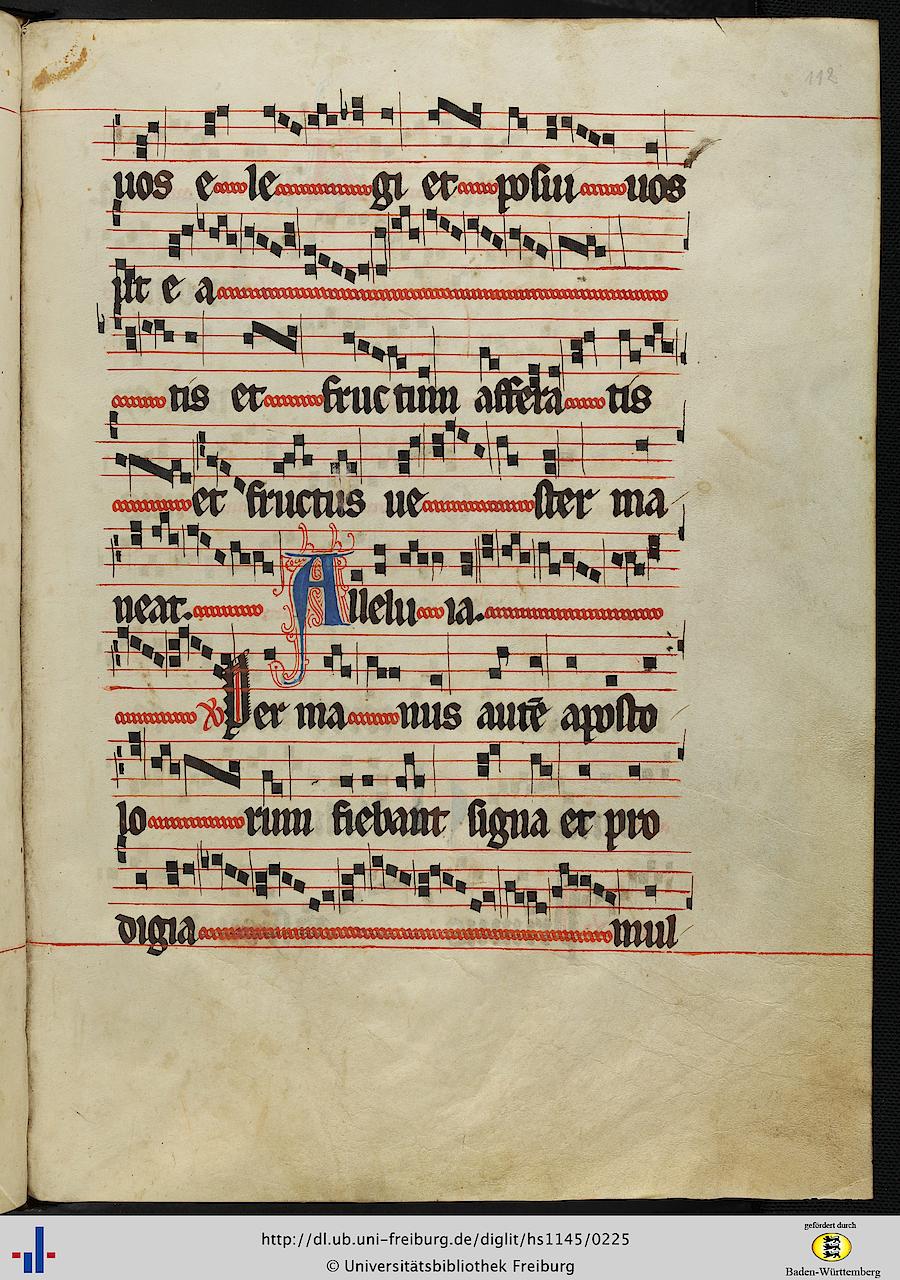 112
uos e le gi et posui uos
ut e a
tis et fructum affera tis
et fructus ue ster ma
neat. Allelu ia.
Per ma nus autē aposto
lo rum fiebant signa et pro
digia mul
http://dl.ub.uni-freiburg.de/diglit/hs1145/0225
© Universitätsbibliothek Freiburg
gefördert durch
Baden-Württemberg